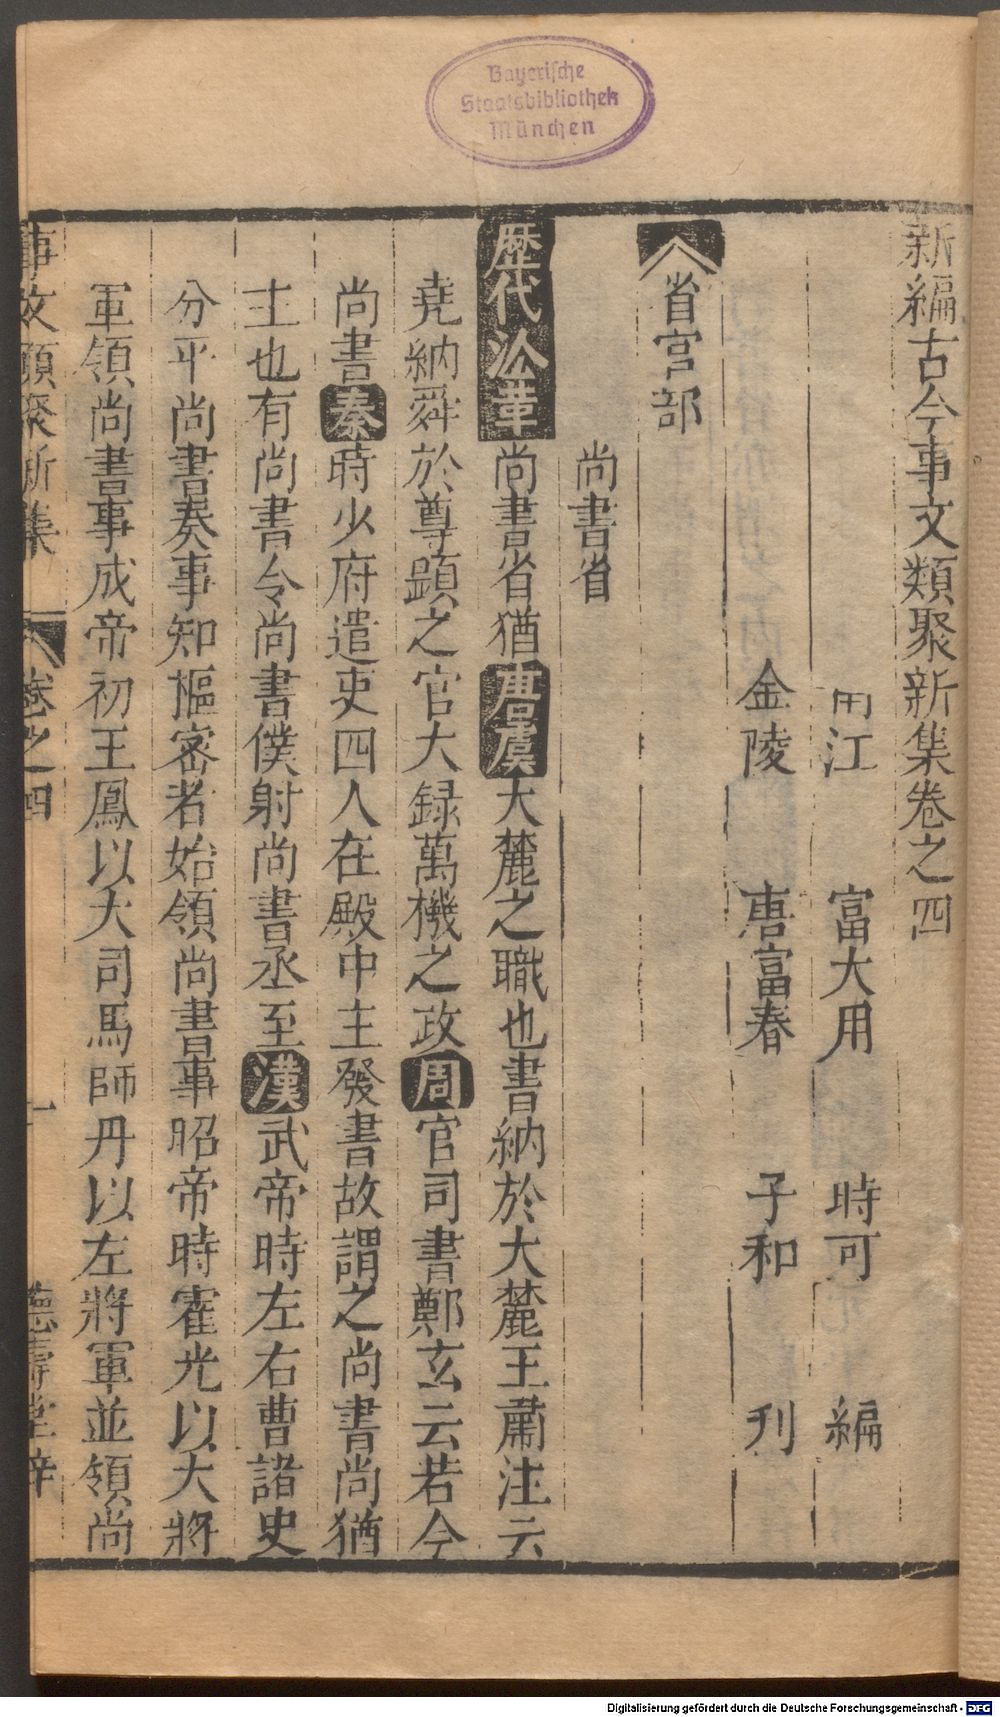 Bayerische
Staatsbibliothek
München
新編古今事文類聚新集卷之四
江 富大用 時可 編
金陵 唐富春 子和 刋
省官部
尚書省
歷代沿革尚書省猶唐虞大麓之職也書納於大麓王肅注云
堯納舜於尊顕之官大録萬機之政周官司書鄭玄云若今
尚書秦時少府遣吏四人在殿中主發書故謂之尚書尚猶
主也有尚書令尚書僕射尚書丞至漢武帝時左右曹諸吏
分平尚書奏事知樞密者始領尚書事昭帝時霍光以大將
軍領尚書事成帝初王鳳以大司馬師丹以左將軍並領尚
事文類聚新集 卷之四 一 德壽堂梓
Digitalisierung gefördert durch die Deutsche Forschungsgemeinschaft - DFG